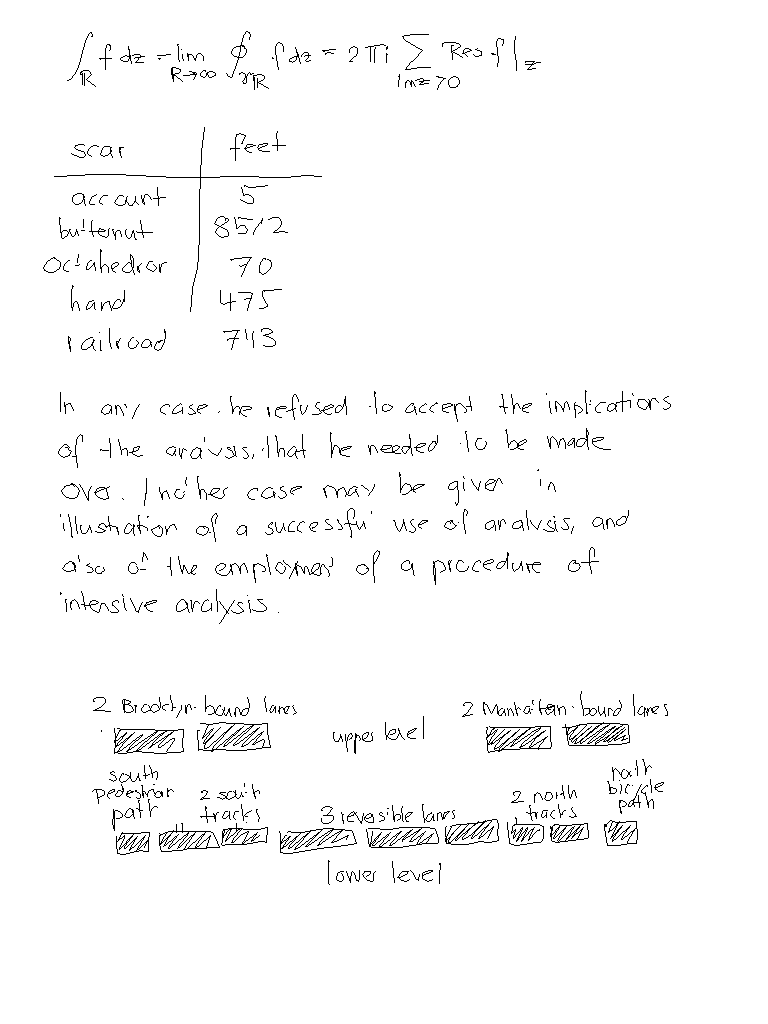 ∫_ℝ f dz = lim_{R→∞} ∮_{γR} f dz = 2πi ∑_{Im z > 0} Res f|_z
scar feet
account 5
butternut 85/2
octahedron 70
hand 475
railroad 743
In any case, he refused to accept the implications
of the analysis, that he needed to be made
over. Another case may be given in
illustration of a successful use of analysis, and
also of the employment of a procedure of
intensive analysis.
2 Brooklyn-bound lanes 2 Manhattan-bound lanes
upper level
south
pedestrian
path
2 south
tracks
3 reversible lanes
2 north
tracks
north
bicycle
path
lower level